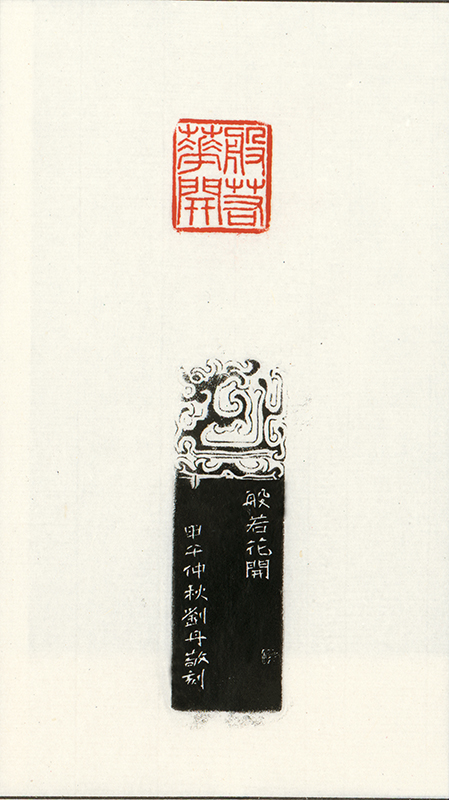 般若
華開
般若花開
甲午仲秋劉丹敬刻